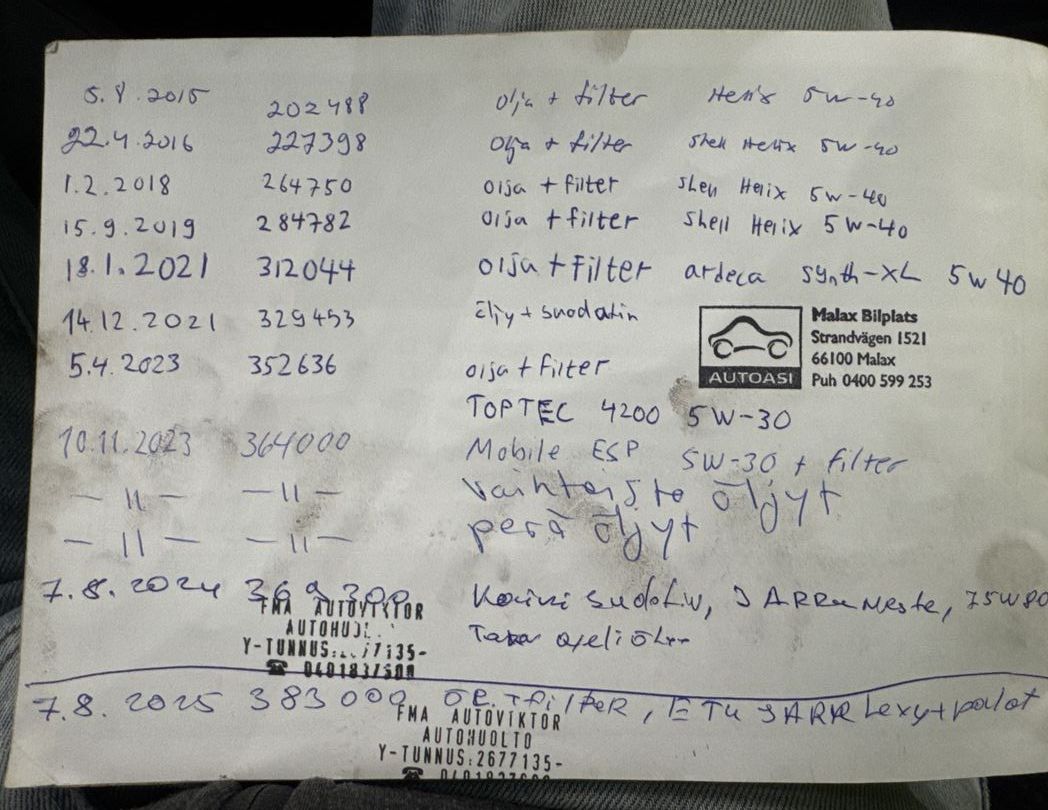 5.8.2015 202488 olja + filter Helix 5w-40
22.4.2016 227398 olja + filter Shell Helix 5w-40
1.2.2018 264750 olja + filter Shell Helix 5w-40
15.9.2019 284782 olja + filter Shell Helix 5w-40
18.1.2021 312044 olja + Filter ardeca synth-XL 5w40
14.12.2021 329453 Öljy + suodatin
AUTOASI
Malax Bilplats
Strandvägen 1521
66100 Malax
Puh 0400 599 253
5.4.2023 352636 olja + filter
TOPTEC 4200 5W-30
10.11.2023 364000 Mobile ESP 5W-30 + filter
-11- -11- vaihteisto öljyt
-11- -11- perä öljyt
7.8.2024 369300 Kaikki, JARRUNeste, 75W80
FMA AUTOVIKTOR
Y-TUNNUS: 77135-
☎ 0401837500
Taka
7.8.2025 383000 + FilTER, ETU JARR Levyt + palat
FMA AUTOVIKTOR
AUTOHUOLTO
Y-TUNNUS:2677135-